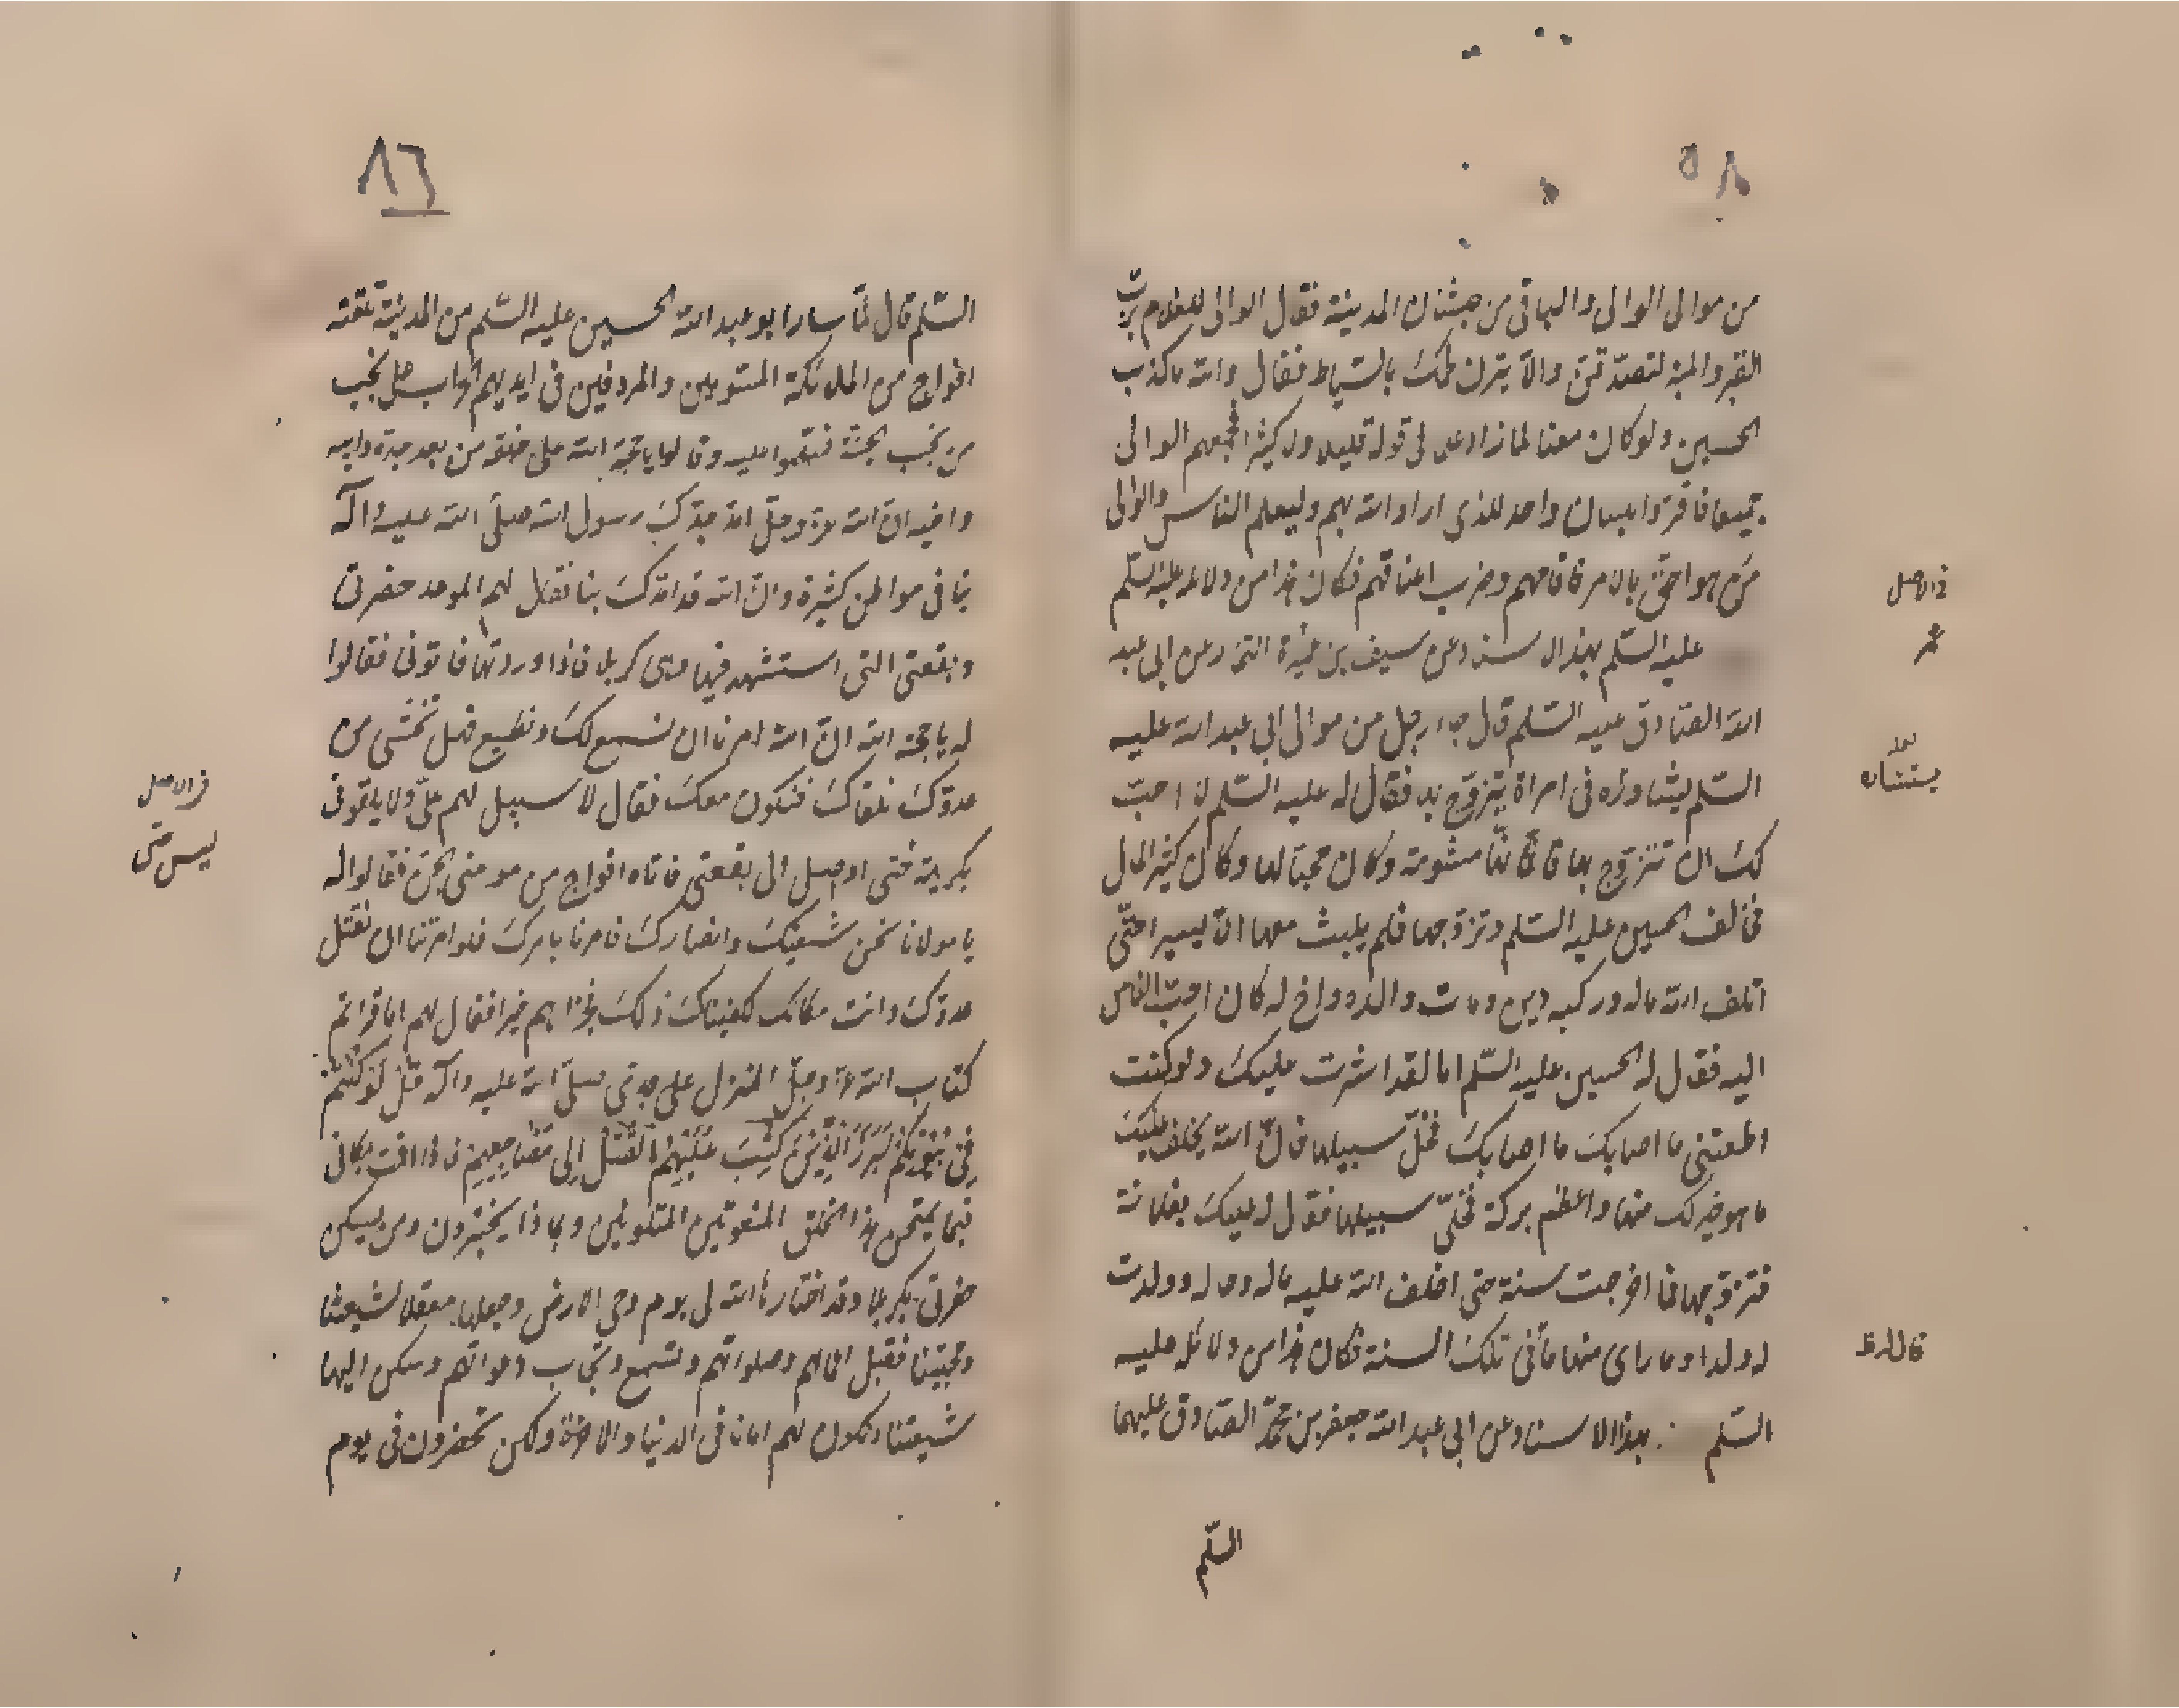 من موالى الوالى والباقى من حبشان المدينة فقال الوالى للغلام برب
القبر والمنبر لتصدقنى والا نثرن لحمك بالسياط فقال والله ما كذب
الحسين ولو كان معنا لما زاد على فى قوله قليلا ولا كثيرا فجمعهم الوالى
جميعا فاقروا بلسان واحد للذى اراد الله بهم وليعلم الناس والوالى
من هو احق بالامر فاقامهم وضرب اعناقهم فكان هذا من دلائله عليه السلم
عليه السلم بهذا الاسناد عن سيف بن عميرة التمار عن ابى عبد
الله الصادق عليه السلم قال جاء رجل من موالى ابى عبد الله عليه
السلم يشاوره فى امراة يتزوج بها فقال له عليه السلم لا احب
لك ان تتزوج بها فانها مشومة وكان محبا لها وكان كثير المال
فخالف الحسين عليه السلم وتزوجها فلم يلبث معها الا يسيرا حتى
اتلف الله ماله وركبه دين ومات والده واخ له كان احب الناس
اليه فقال له الحسين عليه السلم اما لقد اشرت عليك ولو كنت
اطعتنى ما اصابك ما اصابك فخل سبيلها فان الله يخلف عليك
ما هو خير لك منها واعظم بركة فخلى سبيلها فقال له عليك بفلانة
فتزوجها فما خرجت سنة حتى اخلف الله عليه ماله وحاله وولدت
له ولدا وما راى منها ما فى تلك السنة فكان هذا من دلائله عليه
السلم بهذا الاسناد عن ابى عبد الله جعفر بن محمد الصادق عليهما
السلم
فى الاصل
عمر
٨٦
السلم قال لما سار ابو عبد الله الحسين عليه السلم من المدينة تلقته
افواج من الملائكة المسومين والمردفين فى ايديهم حراب على نجب
من نجب الجنة فسلموا عليه وقالوا يا حجة الله على خلقه من بعد جده وابيه
واخيه ان الله عز وجل امد جدك رسول الله صلى الله عليه واله
بنا فى مواطن كثيرة وان الله قد امدك بنا فقال لهم الموعد حضرتى
وبقعتى التى استشهد فيها وهى كربلا فاذا وردتها فاتونى فقالوا
له يا حجة الله ان الله امرنا ان نسمع لك ونطيع فهل تخشى من
عدوك نلقاك فنكون معك فقال لا سبيل لهم على ولا يلقونى
بكريهة حتى اوصل الى بقعتى فاتاه افواج من مومنى الجن فقالوا له
يا مولانا نحن شيعتك وانصارك فامرنا بامرك فلو امرتنا ان نقتل
عدوك وانت مكانك لكفيناك ذلك فجزاهم خيرا فقال لهم اما قراتم
كتاب الله عز وجل المنزل على جدى صلى الله عليه واله قل لو كنتم
فى بيوتكم لبرز الذين كتب عليهم القتل الى مضاجعهم فاذا اقمت بمكانى
فبما يمتحن هذا الخلق وبماذا يختبرون ومن يسكن
حفرتى بكربلا وقد اختارها الله لى يوم دحى الارض وجعلها معقلا لشيعتنا
ومحبينا فتقبل اعمالهم وصلواتهم وتسمع وتجاب دعواتهم وتسكن اليها
شيعتنا وتكون لهم امانا فى الدنيا والاخرة ولكن تحضرون فى يوم
فى الاصل